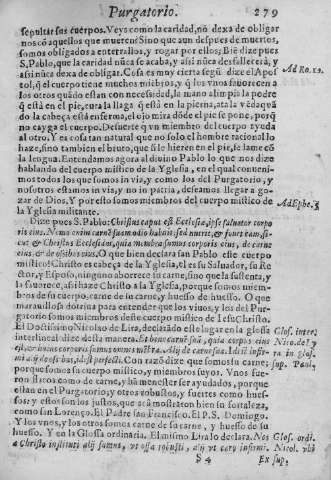 Purgatorio. 279
sepultar sus cuerpos. Veys como la caridad, nō dexa de obligar
nos cō aquellos que mueren? Sino que aun despues de muertos,
somos obligados a enterrallos, y rogar por ellos; Biē dize pues
S. Pablo, que la caridad nūca se acaba, y assi nūca desfallecerá, y
assi nūca dexa de obligar. Cosa es muy cierta segū dize el Apos
Ad Ro. 12.
tol, q̄ el cuerpo tiene muchos miēbros, y q̄ los vnos fauorecen a
los otros quādo estan con necessidad, la mano alimpia la pedre
q̄ está en el pie, cura la llaga q̄ está en la pierna, ata la vēda quā
do la cabeça está enferma, el ojo mira dōde el pie se pone, porq̄
no cayga el cuerpo. De suerte q̄ vn miembro del cuerpo ayuda
al otro. Y es cosa tan natural que no solo el hombre racional lo
haze, sino tambien el bruto, que si le hieren en el pie, se lame cō
la lengua. Entendamos agora al diuino Pablo lo que nos dize
hablando del cuerpo mistico de la Yglesia, en el qual conueni-
mos todos los que somos in via, y como los del Purgatorio, y
nosotros estamos in via, y no in patria, deseamos llegar a go-
zar de Dios. Y por esto somos miembros del cuerpo mistico de
Ad Ephe. 5
la Yglesia militante.
Dize pues S. Pablo: Christus caput est Ecclesiæ, ipse saluator corpo
ris eius. Nemo enim carnē suam odio habuit, sed nutrit, & fouet eam, si-
cut & Christus Ecclesiam, quia membra sumus corporis eius, de carne
eius, & de ossibus eius. O que bien declara san Pablo este cuerpo
mistico! Christo es cabeça de la Yglesia, el es su Saluador, su Re
ctor, y Esposo, ninguno aborrece su carne, sino que la sustenta, y
la fauorece, assi haze Christo a la Yglesia, porque somos miem-
bros de su cuerpo, carne de su carne, y huesso de huesso. O que
marauillosa dotrina para entender que los viuos, y los del Pur-
gatorio somos miembros deste cuerpo mistico de Iesu Christo.
El Doctissimo Nicolao de Lira, declarādo este lugar en la glossa
Glos. inter
interlineal dize desta manera.
Nico. de
est
Con razō dize que somos su carne;
sup. Paul,
porque somos su cuerpo mistico, y miembros suyos. Vnos fue-
ron flacos como de carne, y hā menester ser ayudados, porque
estan en el Purgatorio, y otros robustos, y fuertes como hues-
sos: y estos son los justos, que acā mostraron bien su fortaleza,
como san Lorenço. El Padre san Francisco. El P. S. Domingo.
Y los vnos, y los otros somos carne de su carne, y huesso de su
huesso. Y en la Glossa ordinaria. El mismo Lira lo declara. Nos
Glos. ordi.
a Christo instituti
Nicol. vbi
S 4 Ex sup.